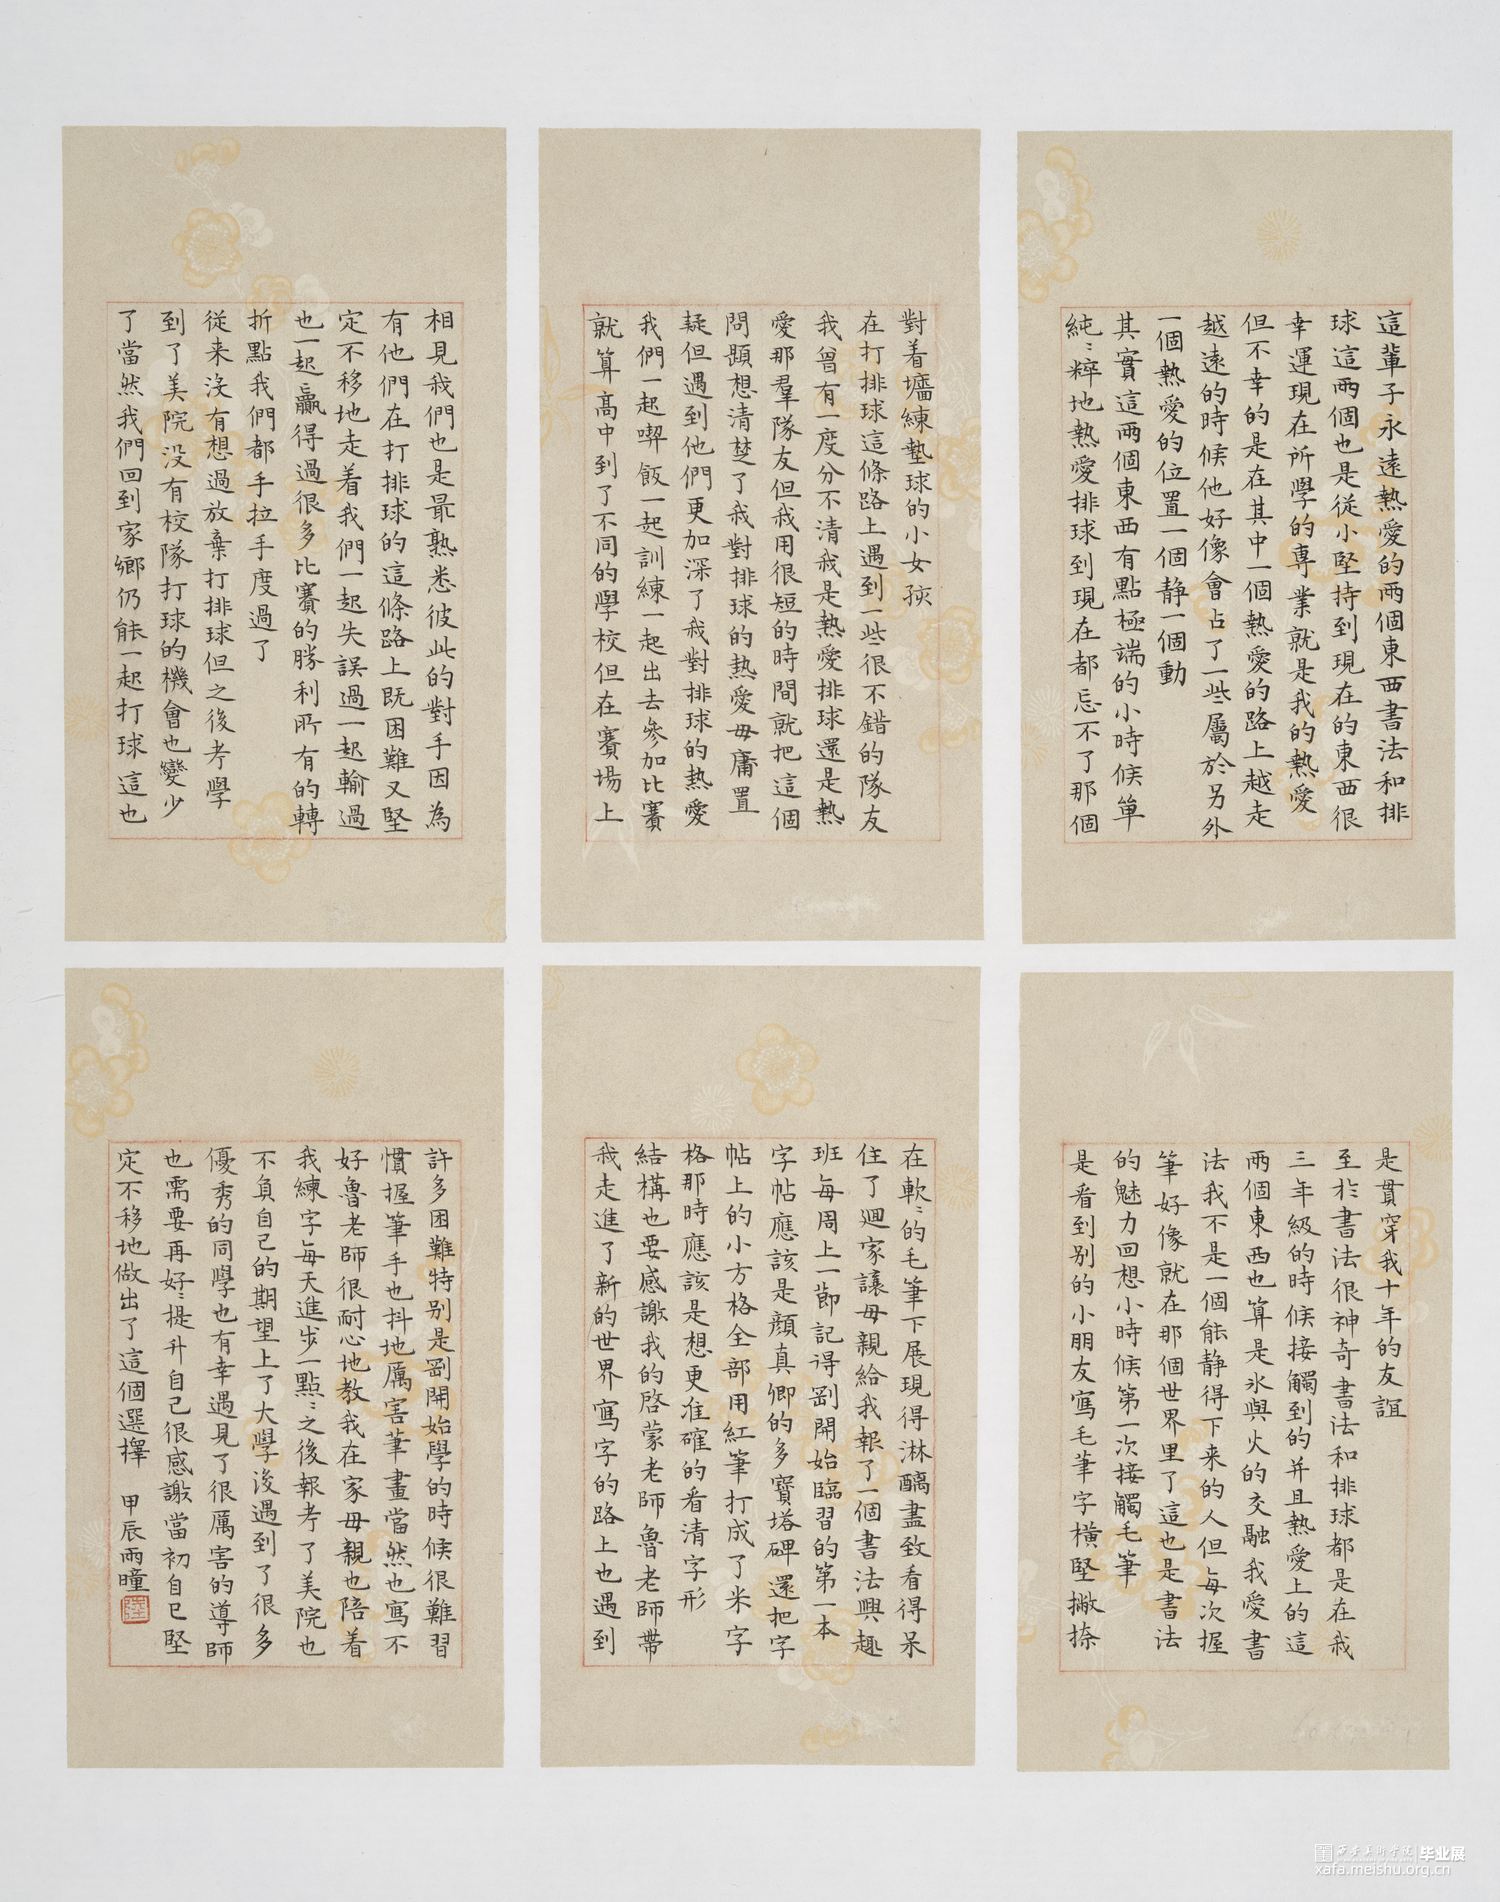 這輩子永遠熱愛的兩個東西書法和排
球這兩個也是從小堅持到現在的東西很
幸運現在所學的專業就是我的熱愛
但不幸的是在其中一個熱愛的路上越走
越遠的時候他好像會占了一些屬於另外
一個熱愛的位置一個静一個動
其實這兩個東西有點極端的小時候單
純〻粹地熱愛排球到現在都忘不了那個
對着墻練墊球的小女孩
在打排球這條路上遇到一些很不錯的隊友
我曾有一度分不清我是熱愛排球還是熱
愛那羣隊友但我用很短的時間就把這個
問題想清楚了我對排球的熱愛毋庸置
疑但遇到他們更加深了我對排球的熱愛
我們一起喫飯一起訓練一起出去參加比賽
就算高中到了不同的學校但在賽場上
相見我們也是最熟悉彼此的對手因為
有他們在打排球的這條路上既困難又堅
定不移地走着我們一起失誤過一起輸過
也一起贏得過很多比賽的勝利所有的轉
折點我們都手拉手度過了
從来沒有想過放棄打排球但之後考學
到了美院没有校隊打球的機會也變少
了當然我們回到家鄉仍能一起打球這也
是貫穿我十年的友誼
至於書法很神奇書法和排球都是在我
三年級的時候接觸到的并且熱愛上的這
兩個東西也算是氷與火的交融我愛書
法我不是一個能静得下来的人但每次握
筆好像就在那個世界里了這也是書法
的魅力回想小時候第一次接觸毛筆
是看到别的小朋友寫毛筆字橫堅撇捺
在軟〻的毛筆下展現得淋醨盡致看得呆
住了迴家讓母親給我報了一個書法興趣
班每周上一節記得剛開始臨習的第一本
字帖應該是顔真卿的多寶塔碑還把字
帖上的小方格全部用紅筆打成了米字
格那時應該是想更准確的看清字形
結構也要感謝我的启蒙老師魯老師帶
我走進了新的世界寫字的路上也遇到
許多困難特别是剛開始學的時候很難習
慣握筆手也抖地厲害筆畫當然也寫不
好魯老師很耐心地教我在家母親也陪着
我練字每天進步一點〻之後報考了美院也
不負自己的期望上了大學後遇到了很多
優秀的同學也有幸遇見了很厲害的導師
也需要再好〻提升自己很感謝當初自己堅
定不移地做出了這個選擇 甲辰雨瞳
陸
西安美術学院 毕业展
xafa.meishu.org.cn